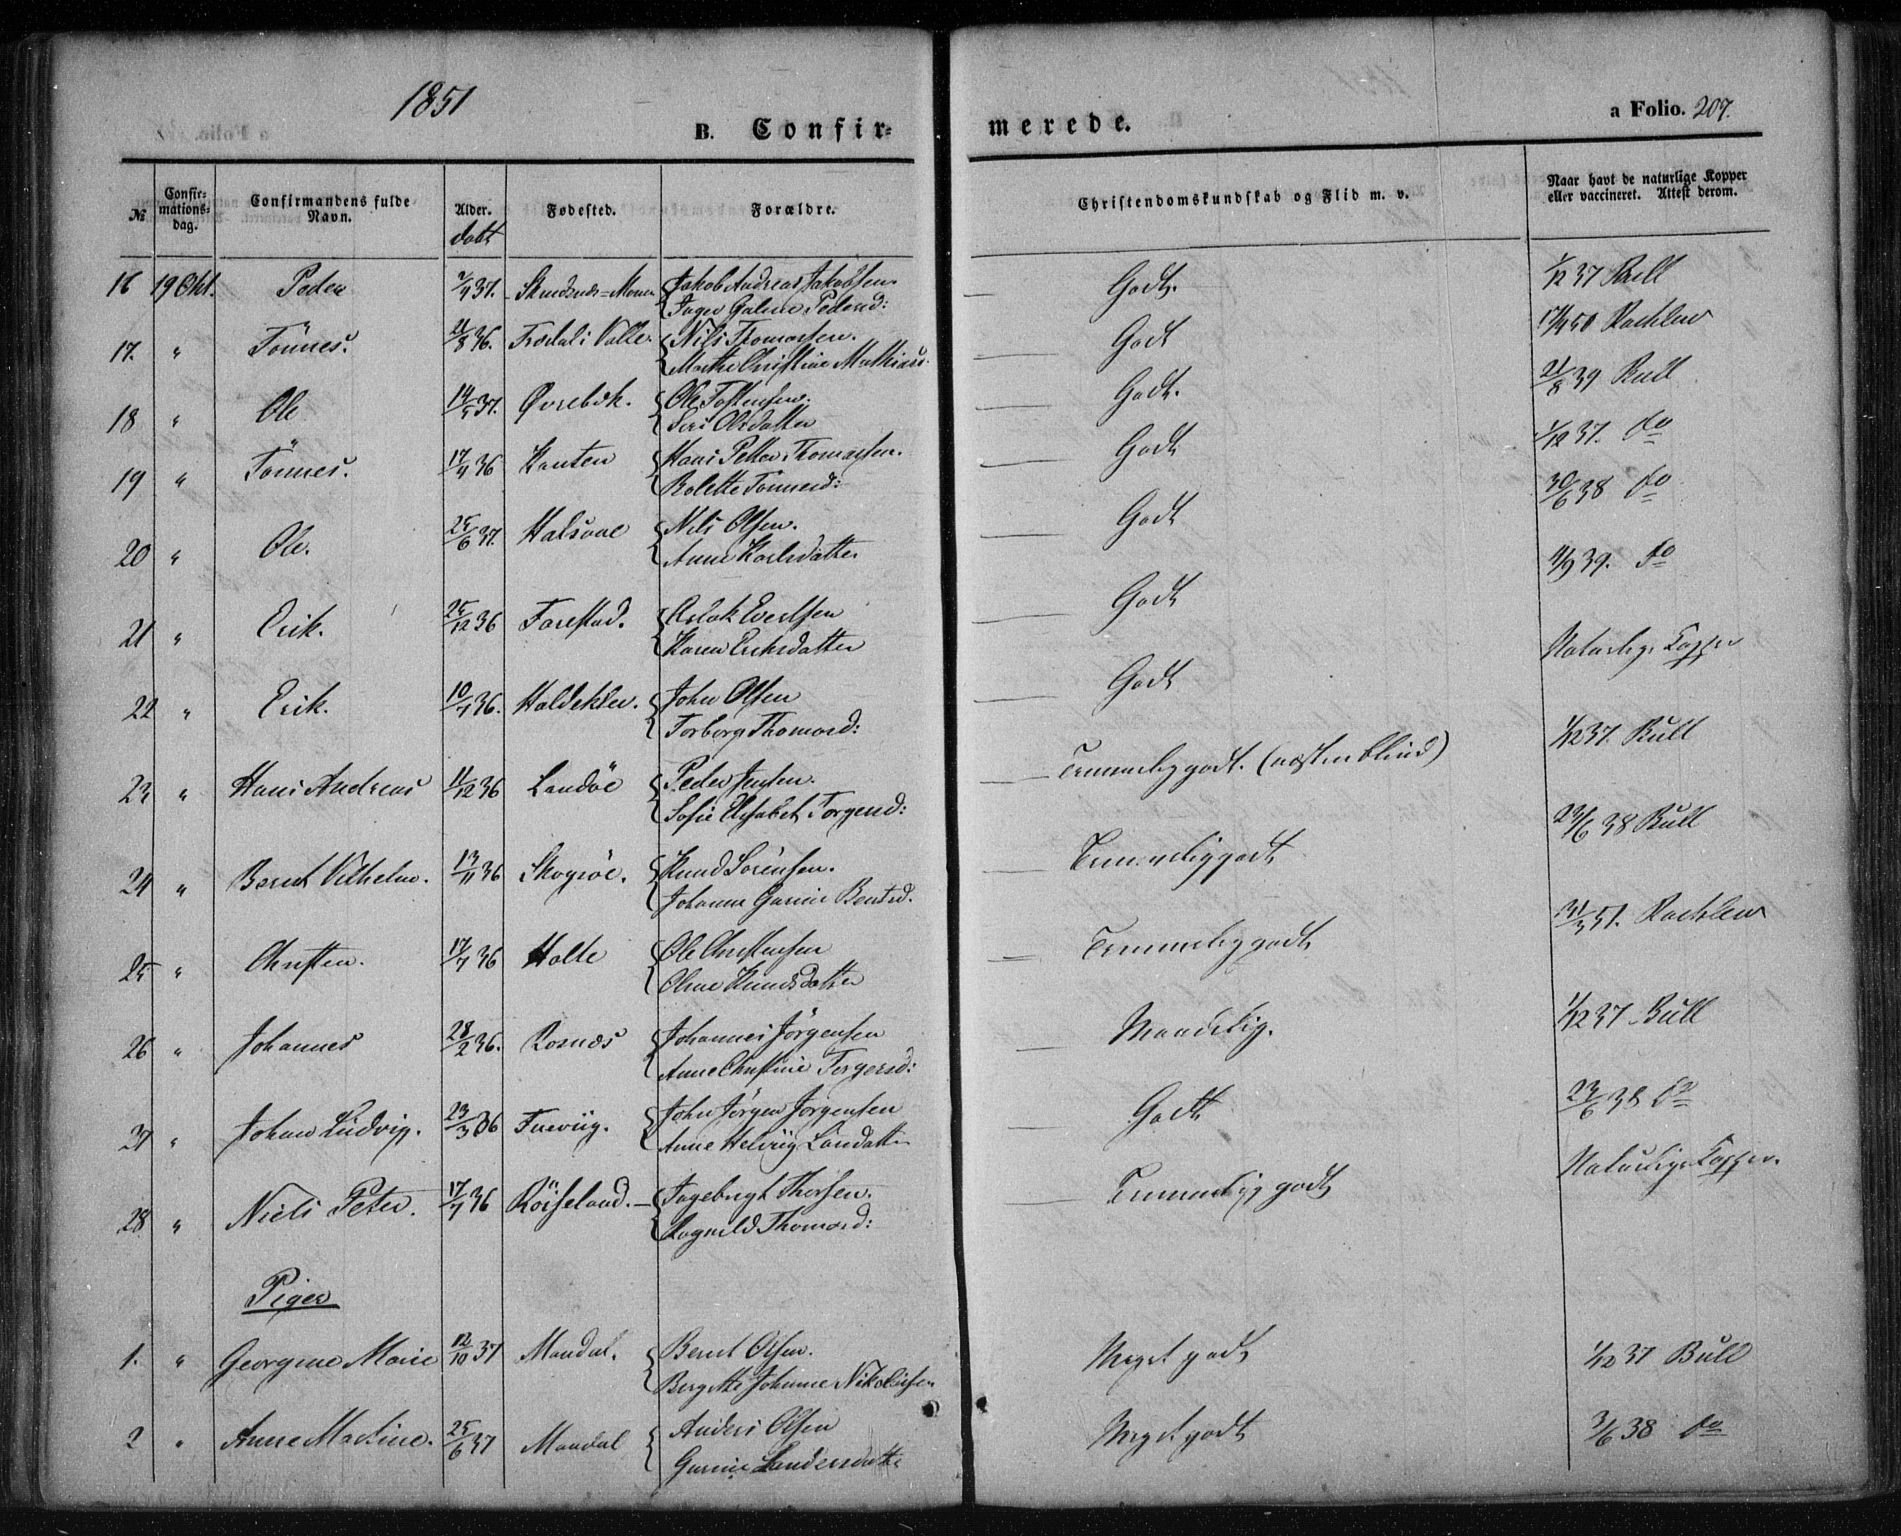 1851
B. Confir-
merede.
a Folio. 207.
№
Confir-mations-dag.
Confirmandens fulde Navn.
Alder.
Fødested.
Forældre.
Christendomskundskab og Flid m. v.
Naar havt de naturlige Kopper eller vaccineret. Attest derom.
16 19 Okt. Peder 37. Jakob Andreas Jakobsen Godt. 1/12 37 Bull
Inger Pedersd:
17. " Tönnes. 21/8 36. Valle. Nils Tomassen. Godt 17/4 50
Marthe Christine Mathiasd.
18 " Ole 14/5 37. Øvrebøk. Ole Godt. 21/8 39 Bull
Siri Olsdatter
19 " Tönnes. 17/9 36 Hans Petter Thomassen. Godt 1/12 37. do
Rolette Tönnesd:
20 " Ole. 25/6 37. Halsaae Nils Olsen. Godt 30/6 38 do
Anne Karlsdatter
21 " Erik. 25/12 36 Farestad. Aslak Evertsen Godt 11/9 39. do
Karen Eriksdatter
22 " Erik. 10/7 36. John Olsen Godt Naturlige Kopper
Torborg Thomasd:
23 " Hans Andreas 11/12 36 Landöe Peder Jensen. Temmelig godt. (næsten blind) 1/12 37. Bull
Sofie Elisabet Torgersd:
24 " Bernt Vilhelm. 13/11 36 Skogsöe. Knud Sörensen. Temmelig godt 23/6 38 Bull
Johanne Gurine Bentsd.
25 " Christen. 17/7 36 Holte Ole Christensen Temmelig godt 31/3 51.
Oline Knudsdatter
26 " Johannes 28/2 36. Rosnæs Johannes Jörgensen Maadelig. 1/12 37 Bull
Anne Christine Torgersd:
27 " Johan Ludvig. 23/3 36 John Jörgen Jörgensen Godt 23/6 38 do
Anne Helvig
28 " Niels Peter. 17/7 36 Röiseland. Ingebregt Thorsen. Temmelig godt Naturlige Kopper.
Ragnild Thomasd:
Piger
1. " Georgine Marie 12/10 37 Mandal. Bernt Olsen. Meget godt 1/12 37 Bull
Bergitte Johanne Nikolaisen
2 " Anne Martine. 25/6 37 Mandal Anders Olsen Meget godt 3/6 38 do
Gurine